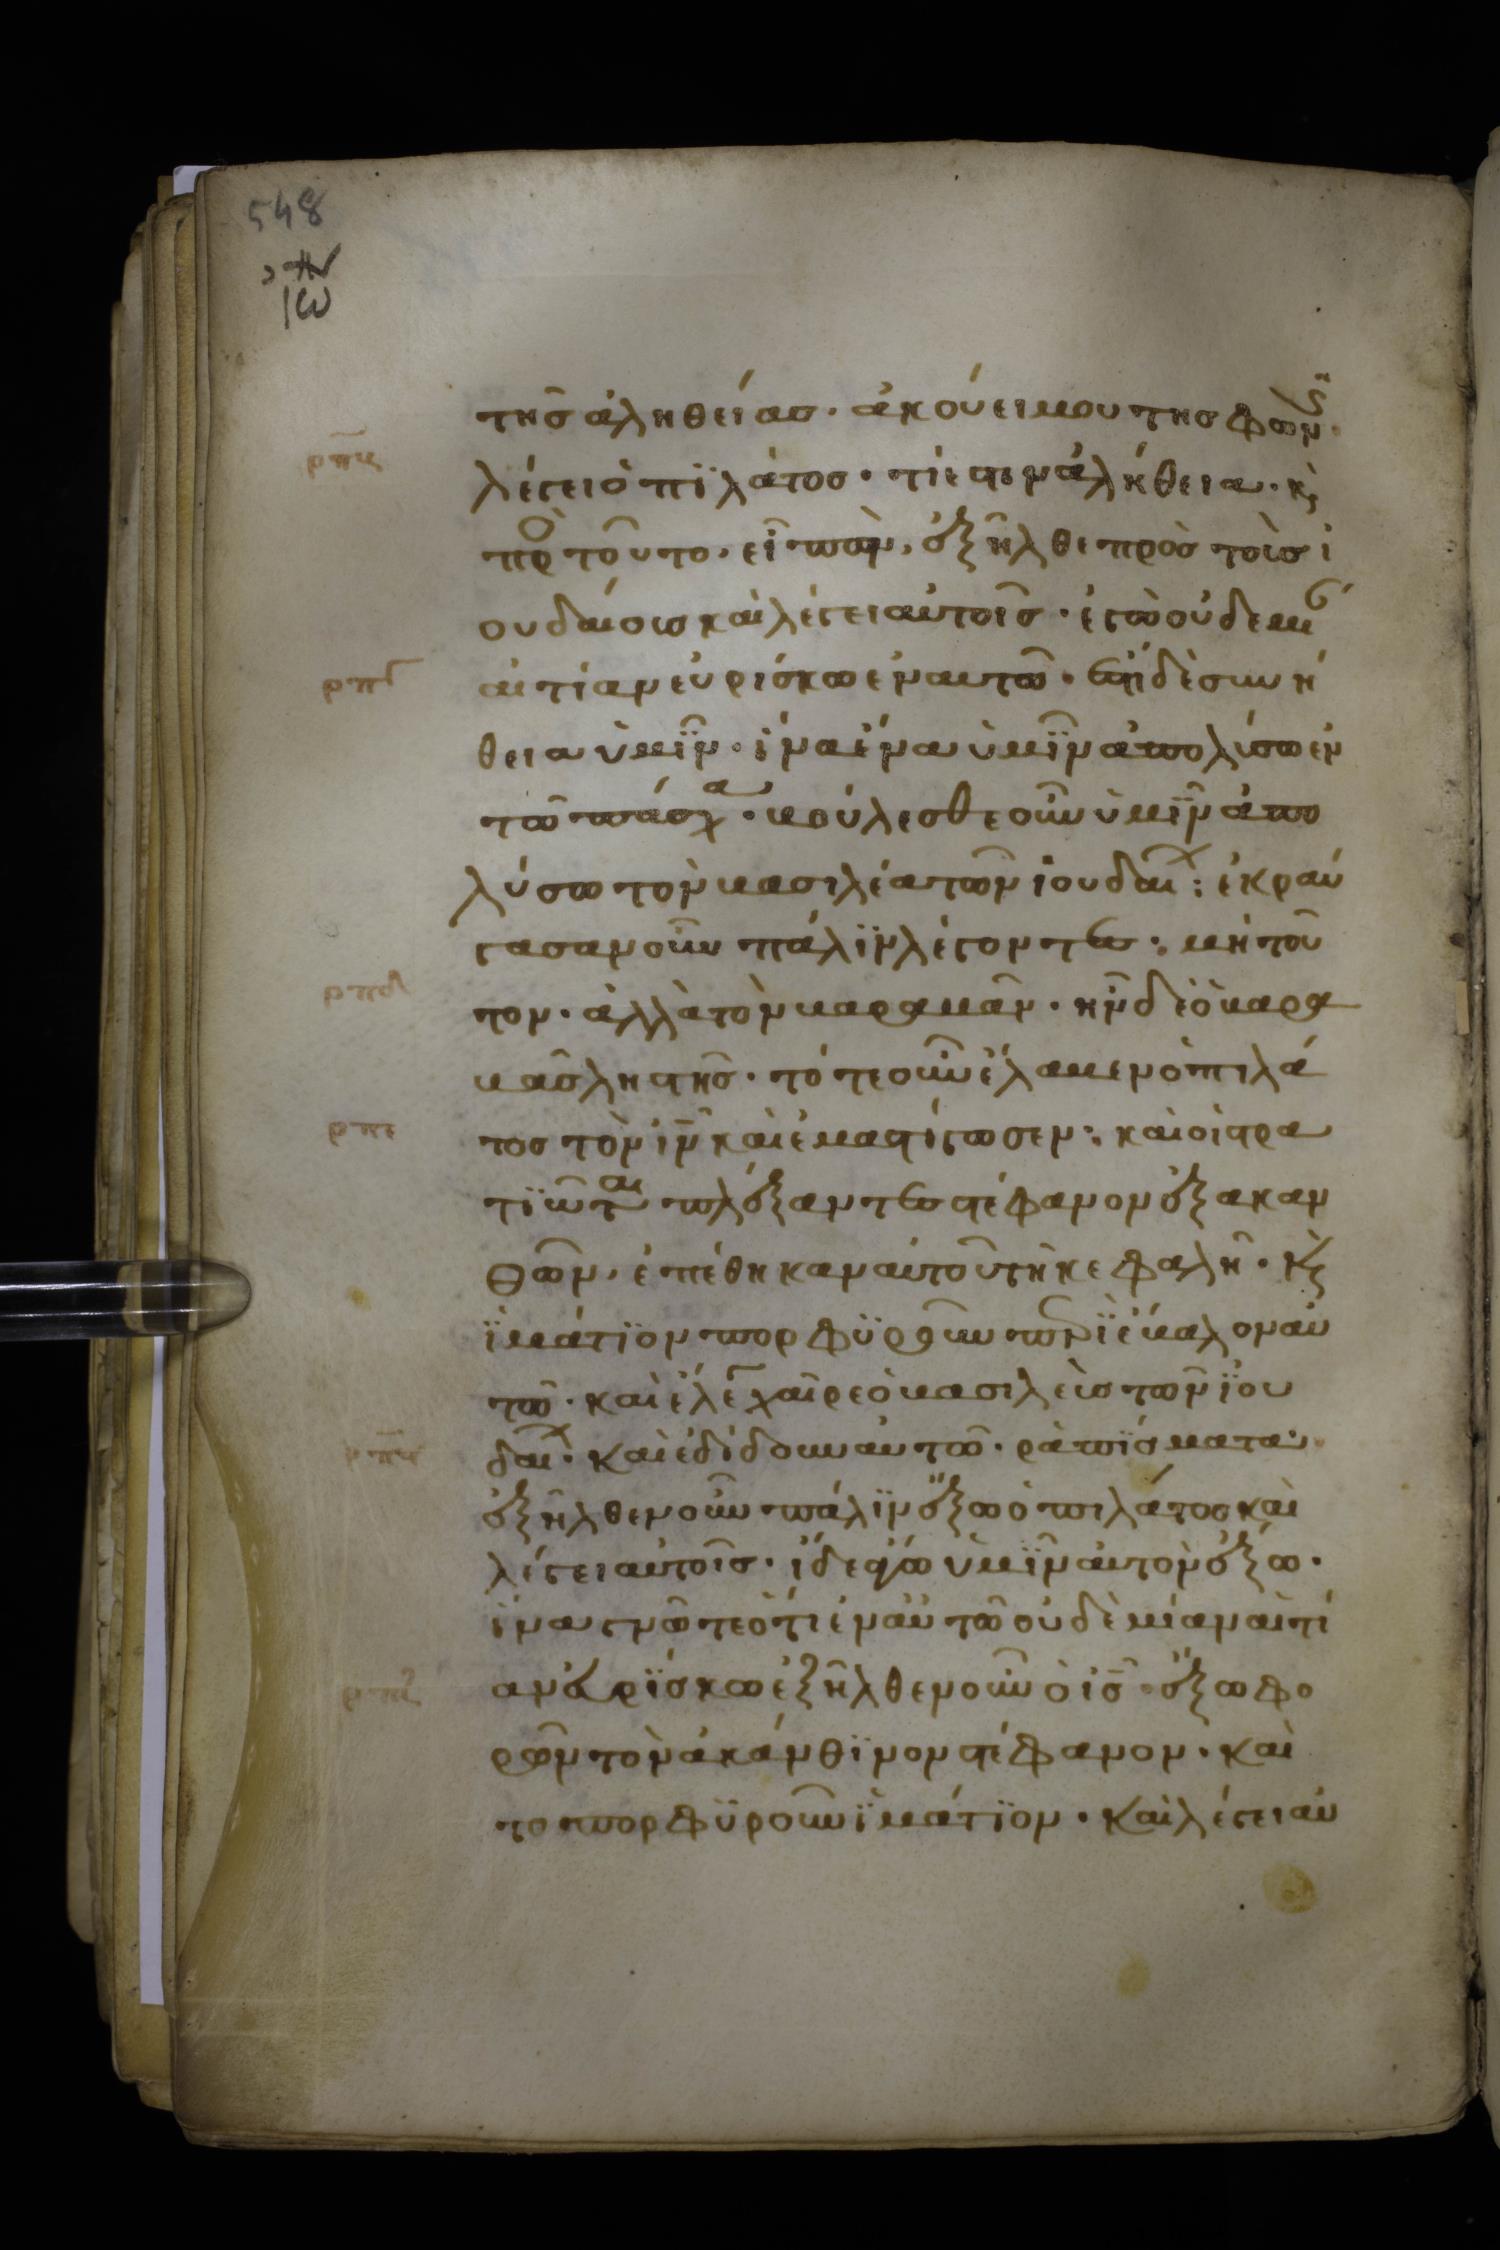 548
ιω
τησ ἀληθείασ · ἀκούει μου τησ φων
λέγει ὁ πϊλάτοσ · τί ἐστιν ἀλήθεια · κὶ
τοῦτο · εἰπὼν · ἐξῆλθε πρὸσ τοὺσ ἰ
ουδαίουσ καὶ λέγει αὐτοῖσ · ἐγὼ οὐδεμ
αἰτίαν εὑρίσκω ἐν αυτῶ · ἔστι δὲ συνή
θεια ὑμῖν · ἵνα ἕνα ὑμῖν ἀπολύσω ἐν
τῶ πάσχα · βούλεσθε οὖν ὑμῖν ἀπο
λύσω τὸν βασιλέα τῶν ἰουδαι : ἐκραύ
γασαν οὖν πάλϊν λέγοντεσ · μὴ τοῦ
τον · ἀλλὰ τὸν βαραβᾶν · ἦν δὲ ὁ βαρα
βᾶσ ληστῆσ · τότε οὖν ἔλαβεν ὁ πιλά
τοσ τὸν ιν καὶ ἐμαστίγωσεν · καὶ οἱ στρα
τϊῶται πλέξαντεσ στέφανον ἐξ ακαν
θῶν · ἐπέθηκαν αὐτοῦ τῆ κεφαλῆ · κὶ
ἱμάτϊον πορφϋροῦν περιέβαλον αὐ
τῶ · καὶ ἔλεγ χαῖρε ὁ βασιλεὺσ τῶν ϊου
δαι · καὶ ἐδίδουν αὐτῶ · ραπίσματα
ἐξῆλθεν οὖν πάλϊν ἔξω ὁ πιλάτοσ καὶ
λέγει αὐτοῖσ · ἴδε ἄγω ὑμῖν αὐτὸν ἔξω ·
ἵνα γνῶτε ὅτι ἐν αὐτῶ οὐδὲμίαν αἰτί
αν εὑρίσκω ἐξῆλθεν οὖν ὁ ισ · ἔξω φο
ρῶν τὸν ἀκάνθϊνον στέφανον · καὶ
το πορφϋροῦν ἱμάτϊον · καὶ λέγει αὐ